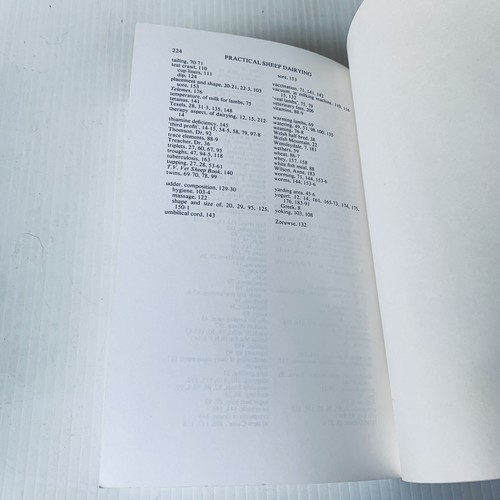 224
PRACTICAL SHEEP DAIRYING
tailing, 70-71
teat crawl, 110
cup liners, 111
dip, 124
placement and shape, 20-21, 22-3, 103
sore, 153
Telemes, 176
temperature, of milk for lambs, 75
tetanus, 141
Texels, 28, 31-3, 135, 148
therapy aspect, of dairying, 12, 15, 212-
14
thiamine deficiency, 145
'third profit', 14-15, 34-5, 58, 79, 97-8
Thomson, Dr, 92
trace elements, 88-9
Treacher, Dr, 36
triplets, 27, 60, 67, 95
troughs, 47, 94-5, 118
tuberculosis, 163
tupping, 27, 28, 53-61
T.V. Vet Sheep Book, 140
twins, 69-70, 78, 99
udder, composition, 129-30
hygiene, 103-8
massage, 122
shape and size of, 20, 29, 95, 125,
150-1
umbilical cord, 143
sore, 153
vaccination, 71, 141, 142
vacuum, of milking machine, 110, 114
15, 132
'veal lambs', 75, 79
veterinary fees, 206
vitamins, 88-9
warming lambs, 69
watering, 49, 51, 98, 100, 135
weaning, 76-8
Welsh half bred, 38
Welsh Mountain, 22
Wensleydale, 7, 181
wethers, 59
wheat, 86-7
whey, 157, 158
white fish meal, 88
Wilson, Anne, 183
worming, 71, 144, 153-6
worms, 144, 153-6
yarding area, 45-6
yogurt, 12, 14, 161, 165-73, 174, 175,
176, 183-91
Greek, 8
yoking, 103, 108
Zeeuwse, 132